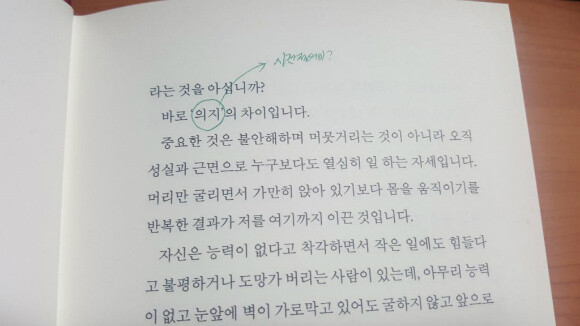 라는 것을 아십니까?
바로 '의지'의 차이입니다.
중요한 것은 불안해하며 머뭇거리는 것이 아니라 오직
성실과 근면으로 누구보다도 열심히 일 하는 자세입니다.
머리만 굴리면서 가만히 앉아 있기보다 몸을 움직이기를
반복한 결과가 저를 여기까지 이끈 것입니다.
자신은 능력이 없다고 착각하면서 작은 일에도 힘들다
고 불평하거나 도망가 버리는 사람이 있는데, 아무리 능력
이 없고 눈앞에 벽이 가로막고 있어도 굴하지 않고 앞으로